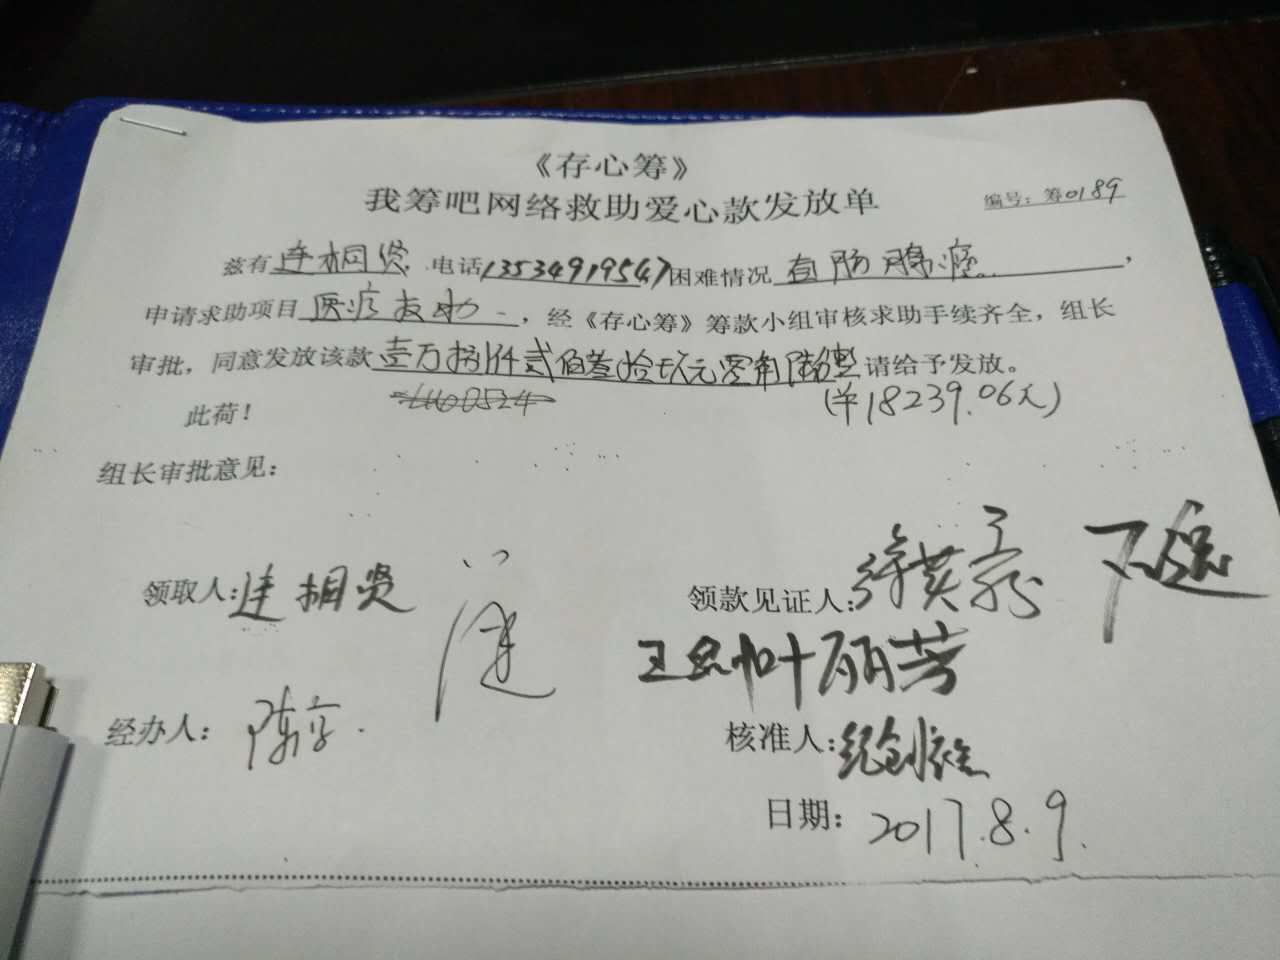 《存心筹》
我筹吧网络救助爱心款发放单
编号：筹0189
兹有连桐贤 电话13534919547困难情况 直肠腺癌，
申请求助项目医疗救助，经《存心筹》筹款小组审核求助手续齐全，组长
审批，同意发放该款壹万捌仟贰佰叁拾玖元零角陆分 请给予发放。
(￥18239.06元)
此荷！
组长审批意见：
领取人:连桐贤
领款见证人:徐英
叶丽芳
经办人：陈
核准人:纪创雄
日期：2017.8.9.